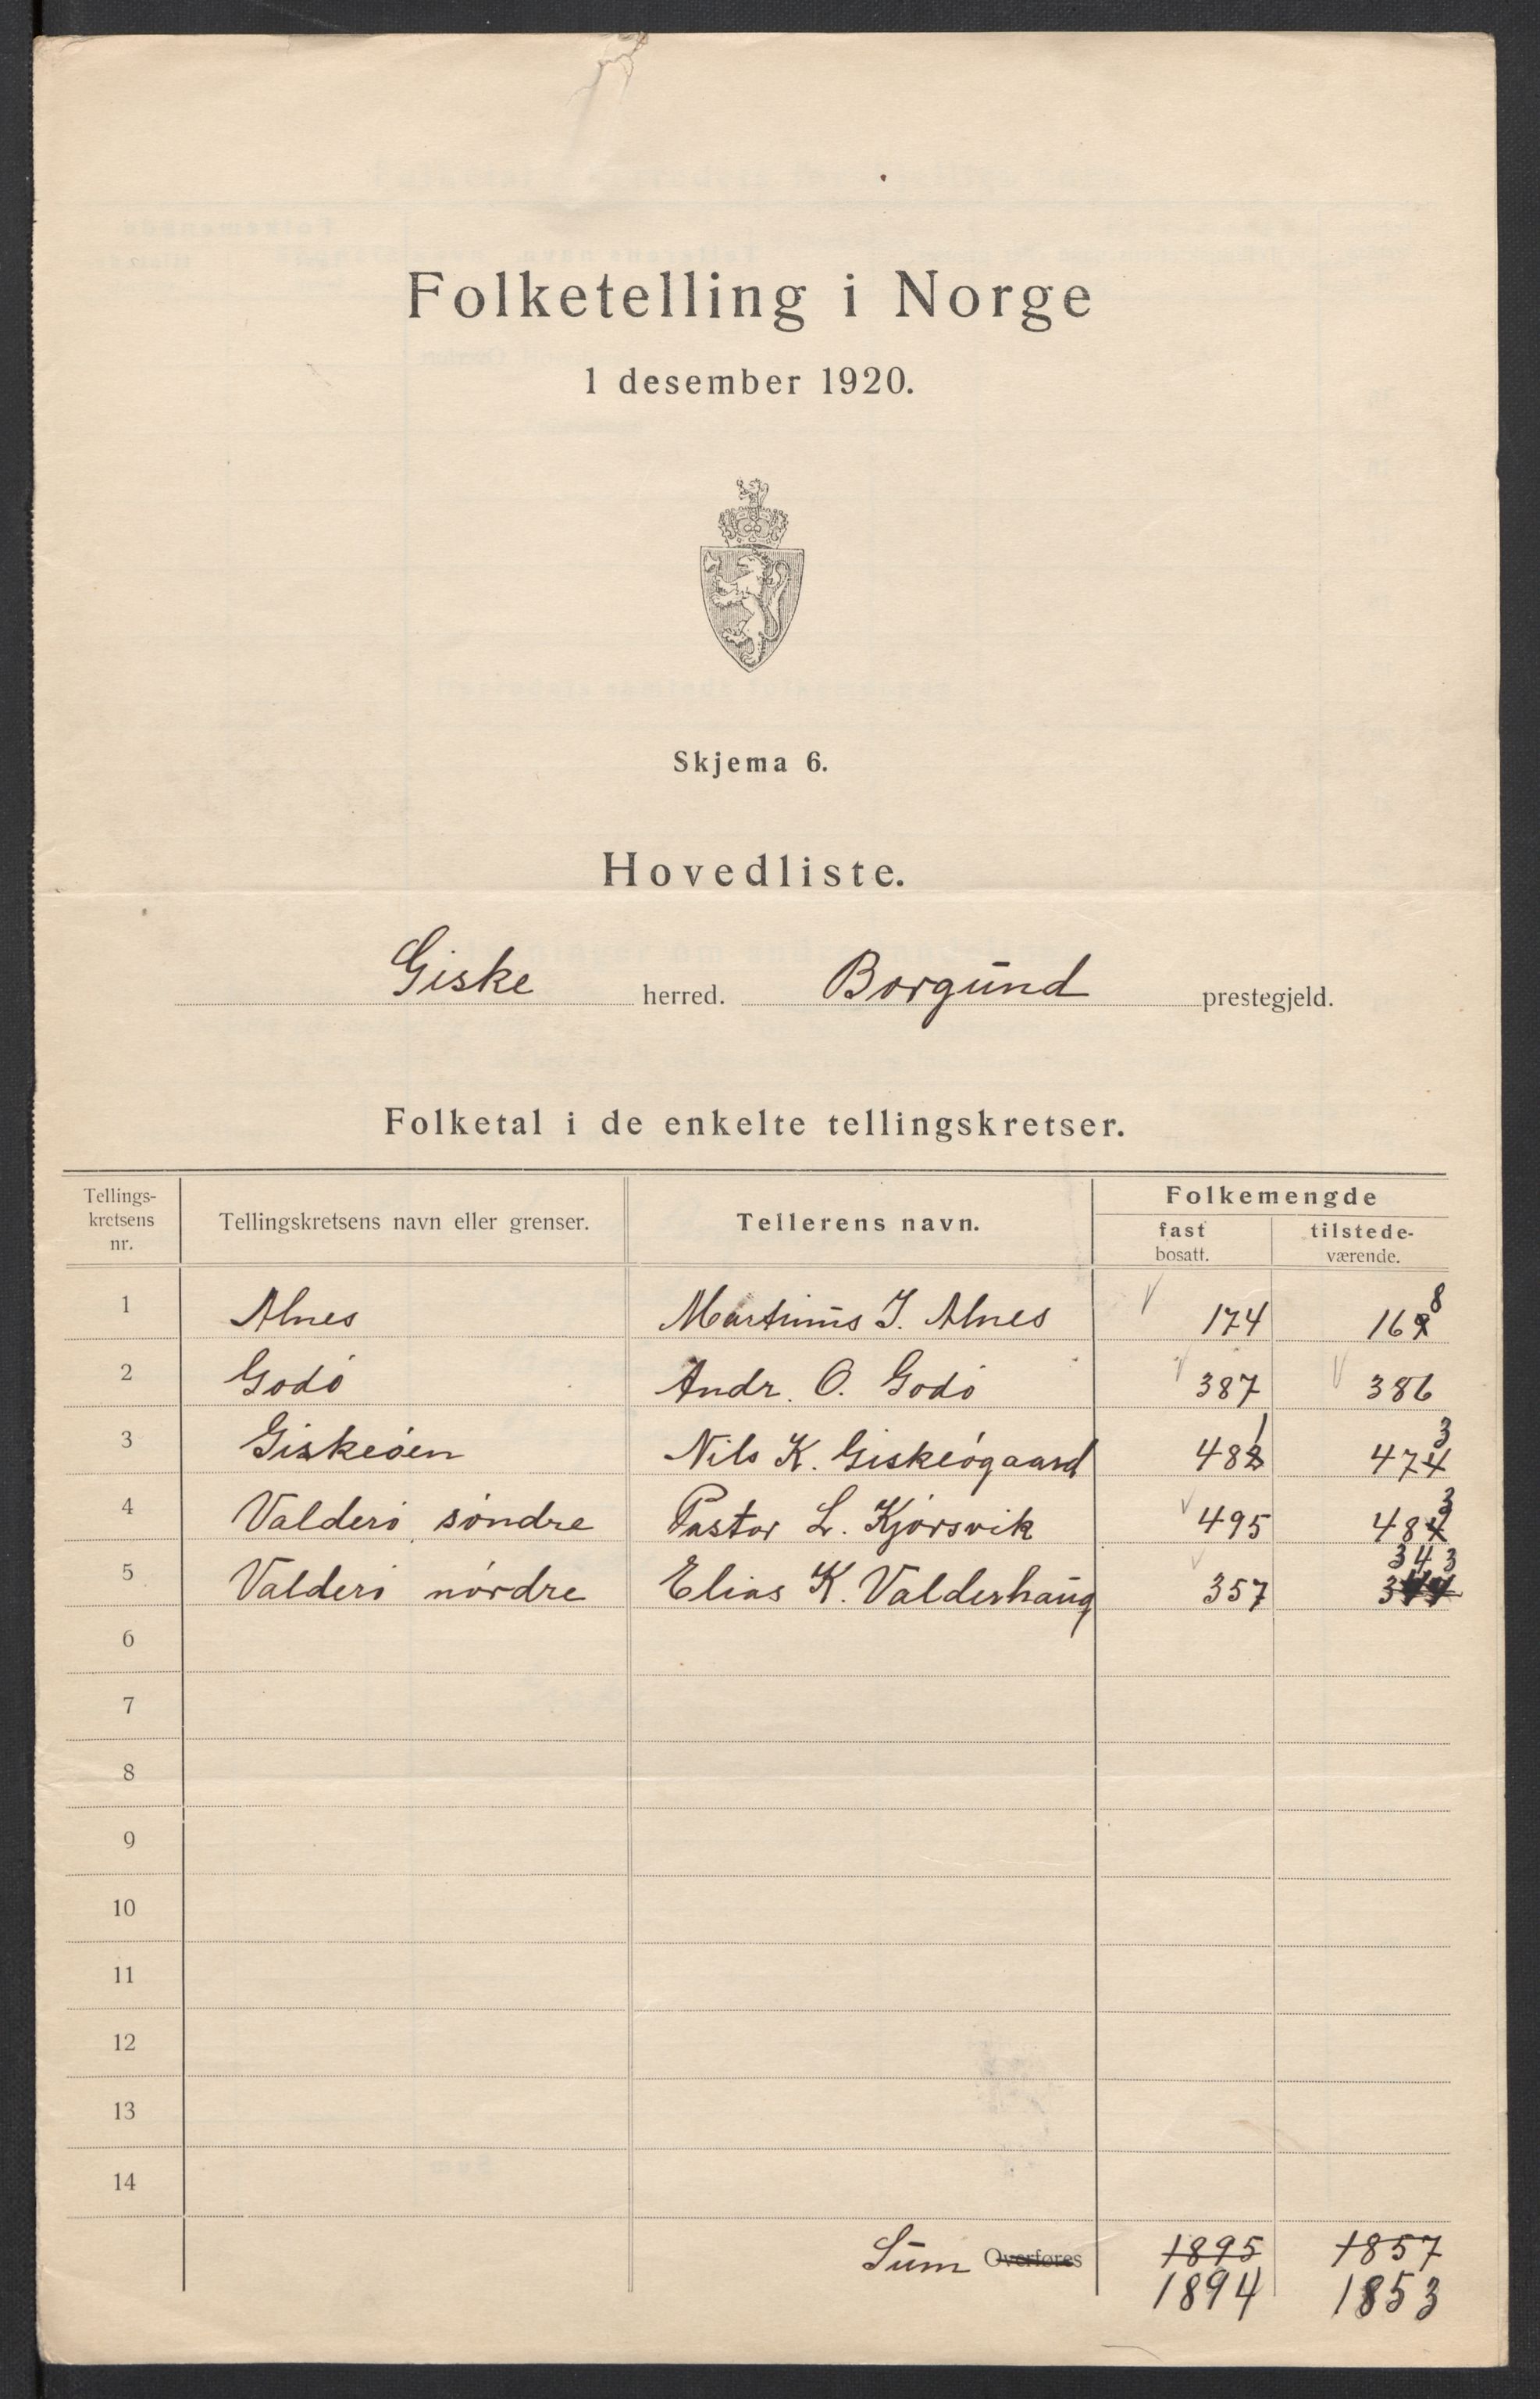 Folketelling i Norge
1 desember 1920.
Skjema 6.
Hovedliste.
Giske herred. Borgund prestegjeld.
Folketal i de enkelte tellingskretser.
Tellings-
kretsens
nr.
Tellingskretsens navn eller grenser.
Tellerens navn.
Folkemengde
fast
bosatt.
tilstede-
værende.
1 Alnes Martinus J. Alnes 174 168
2 Godø Andr. O. Godø 387 386
3 Giskeøen Nils K. Giskeøgaard 481 473
4 Valderø søndre Pastor L. Kjørsvik 495 483
5 Valderø nørdre Elias K. Valderhaug 357 343
6
7
8
9
10
11
12
13
14
Sum Overføres 1895 1857
1894 1853